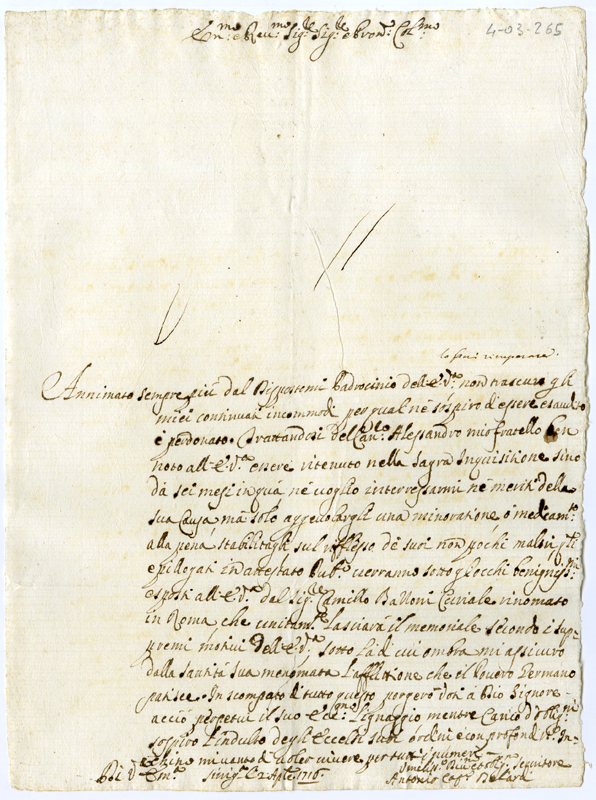 Em.mo e Rev.mo Sig.re Sig.re e Pron. Col.mo
4-03-265
Annimato sempre più dal Padrocinio dell'E.V.a non trascuro gli
miei continuati incommodi per qual ne sospiro d'essere esaudito
e perdonato. Trattandosi del Can.co Alessandro mio fratello ben
noto all'E.V.a essere ritenuto nella Sagra Inquisitione sino
da sei mesi in quà nè voglio interressarmi nè meriti della
sua Causa mà solo appevolargli una minoratione ò medicam.to
alla pena stabilitagli sul riflesso de suoi non pochi malori
epillogati in attestato Pub.co verranno sotto gl'occhi benigniss.mi
esposti all'E.V.a dal Sig.re Camillo Balloni Curiale rinomato
in Roma che unitam.te lasciarà il memoriale secondo i sup-
premi motivi dell'E.V.a sotto la di cui ombra mi assicuro
dalla santità sua menomata l'afflitione che il povero Germano
patisce. In scompato di tutto questo porgerò voti à Dio Signore
acciò perpetui il suo Lignaggio mentre Carico d'oblig.ni
sospiro l'indulto degli Eccelsi suoi ordini e con profond.mo In-
chino mi vanto di voler vivere per tutti i numeri
Di V. Em.za Sinig.a 2 Ap.le 1716.
Umiliss.mo Div.mo et Oblig.mo Servitore
Antonio